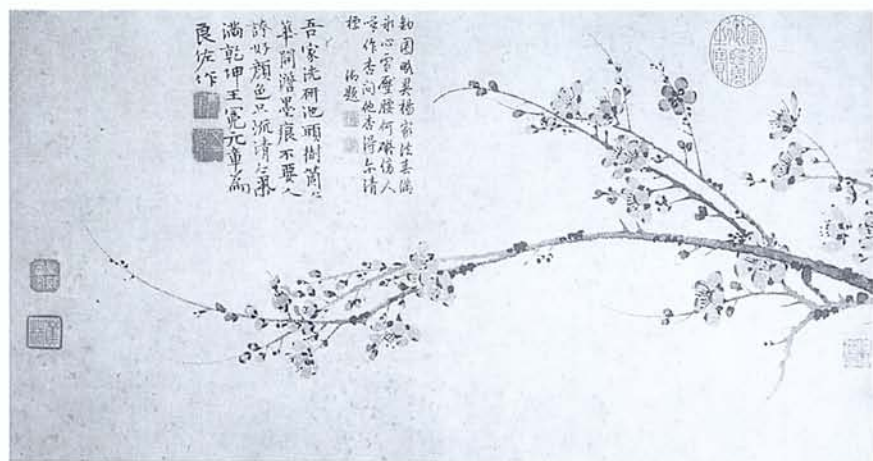 鈎圈畧異楊家法春滿
冰心雪壓腰何礙傍人
喚作杏問他杏得尔清
標 御題
吾家洗研池頭樹箇〻
華開澹墨痕不要人
誇好顏色只流清氣
滿乾坤王冕元章為
良佐作